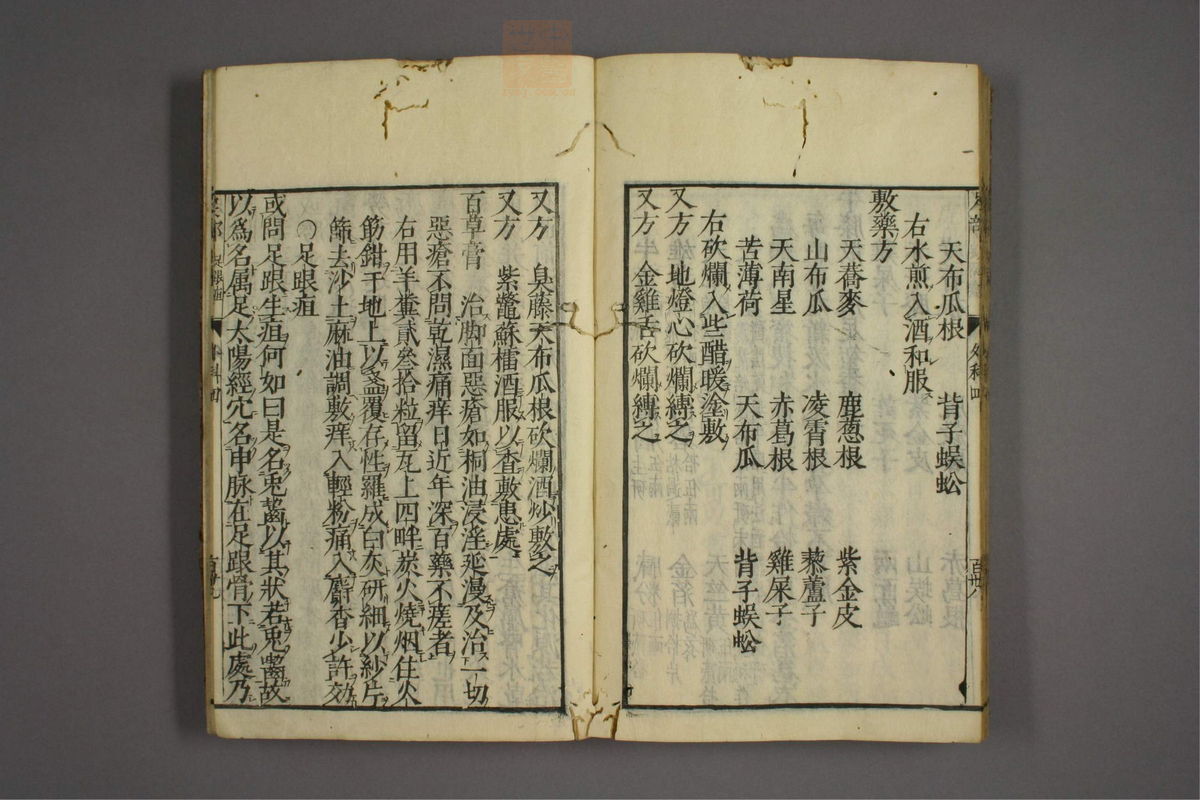 天布瓜根　背子蜈蚣
右水煎入酒和服
敷藥方
天蕎麥　鹿葱根　紫金皮
山布瓜　凌霄根　藜蘆子
天南星　赤葛根　雞屎子
苦薄荷　天布瓜　背子蜈蚣
右砍爛入些醋暖塗敷
又方　地燈心砍爛縳之
又方　金雞舌砍爛縳之
又方　臭藤天布瓜根砍爛酒炒敷之
又方　紫鼈蘇櫺酒服以查敷患處
百草膏　治脚面惡瘡如桐油浸淫延漫及治一切
惡瘡不問乾濕痛痒日近年深百藥不瘥者
右用羊糞貳叄拾粒留瓦上四畔炭火燒烟住火
筋鉗干地上以盞覆存性羅成白灰研細以紗片
篩去沙土麻油調敷痒入輕粉痛入麝香少許効
○足跟疽
或問足跟生疽何如曰是名兎齧以其狀若兎齧故
以爲名属足太陽經穴名申脉在足跟骨下此處乃